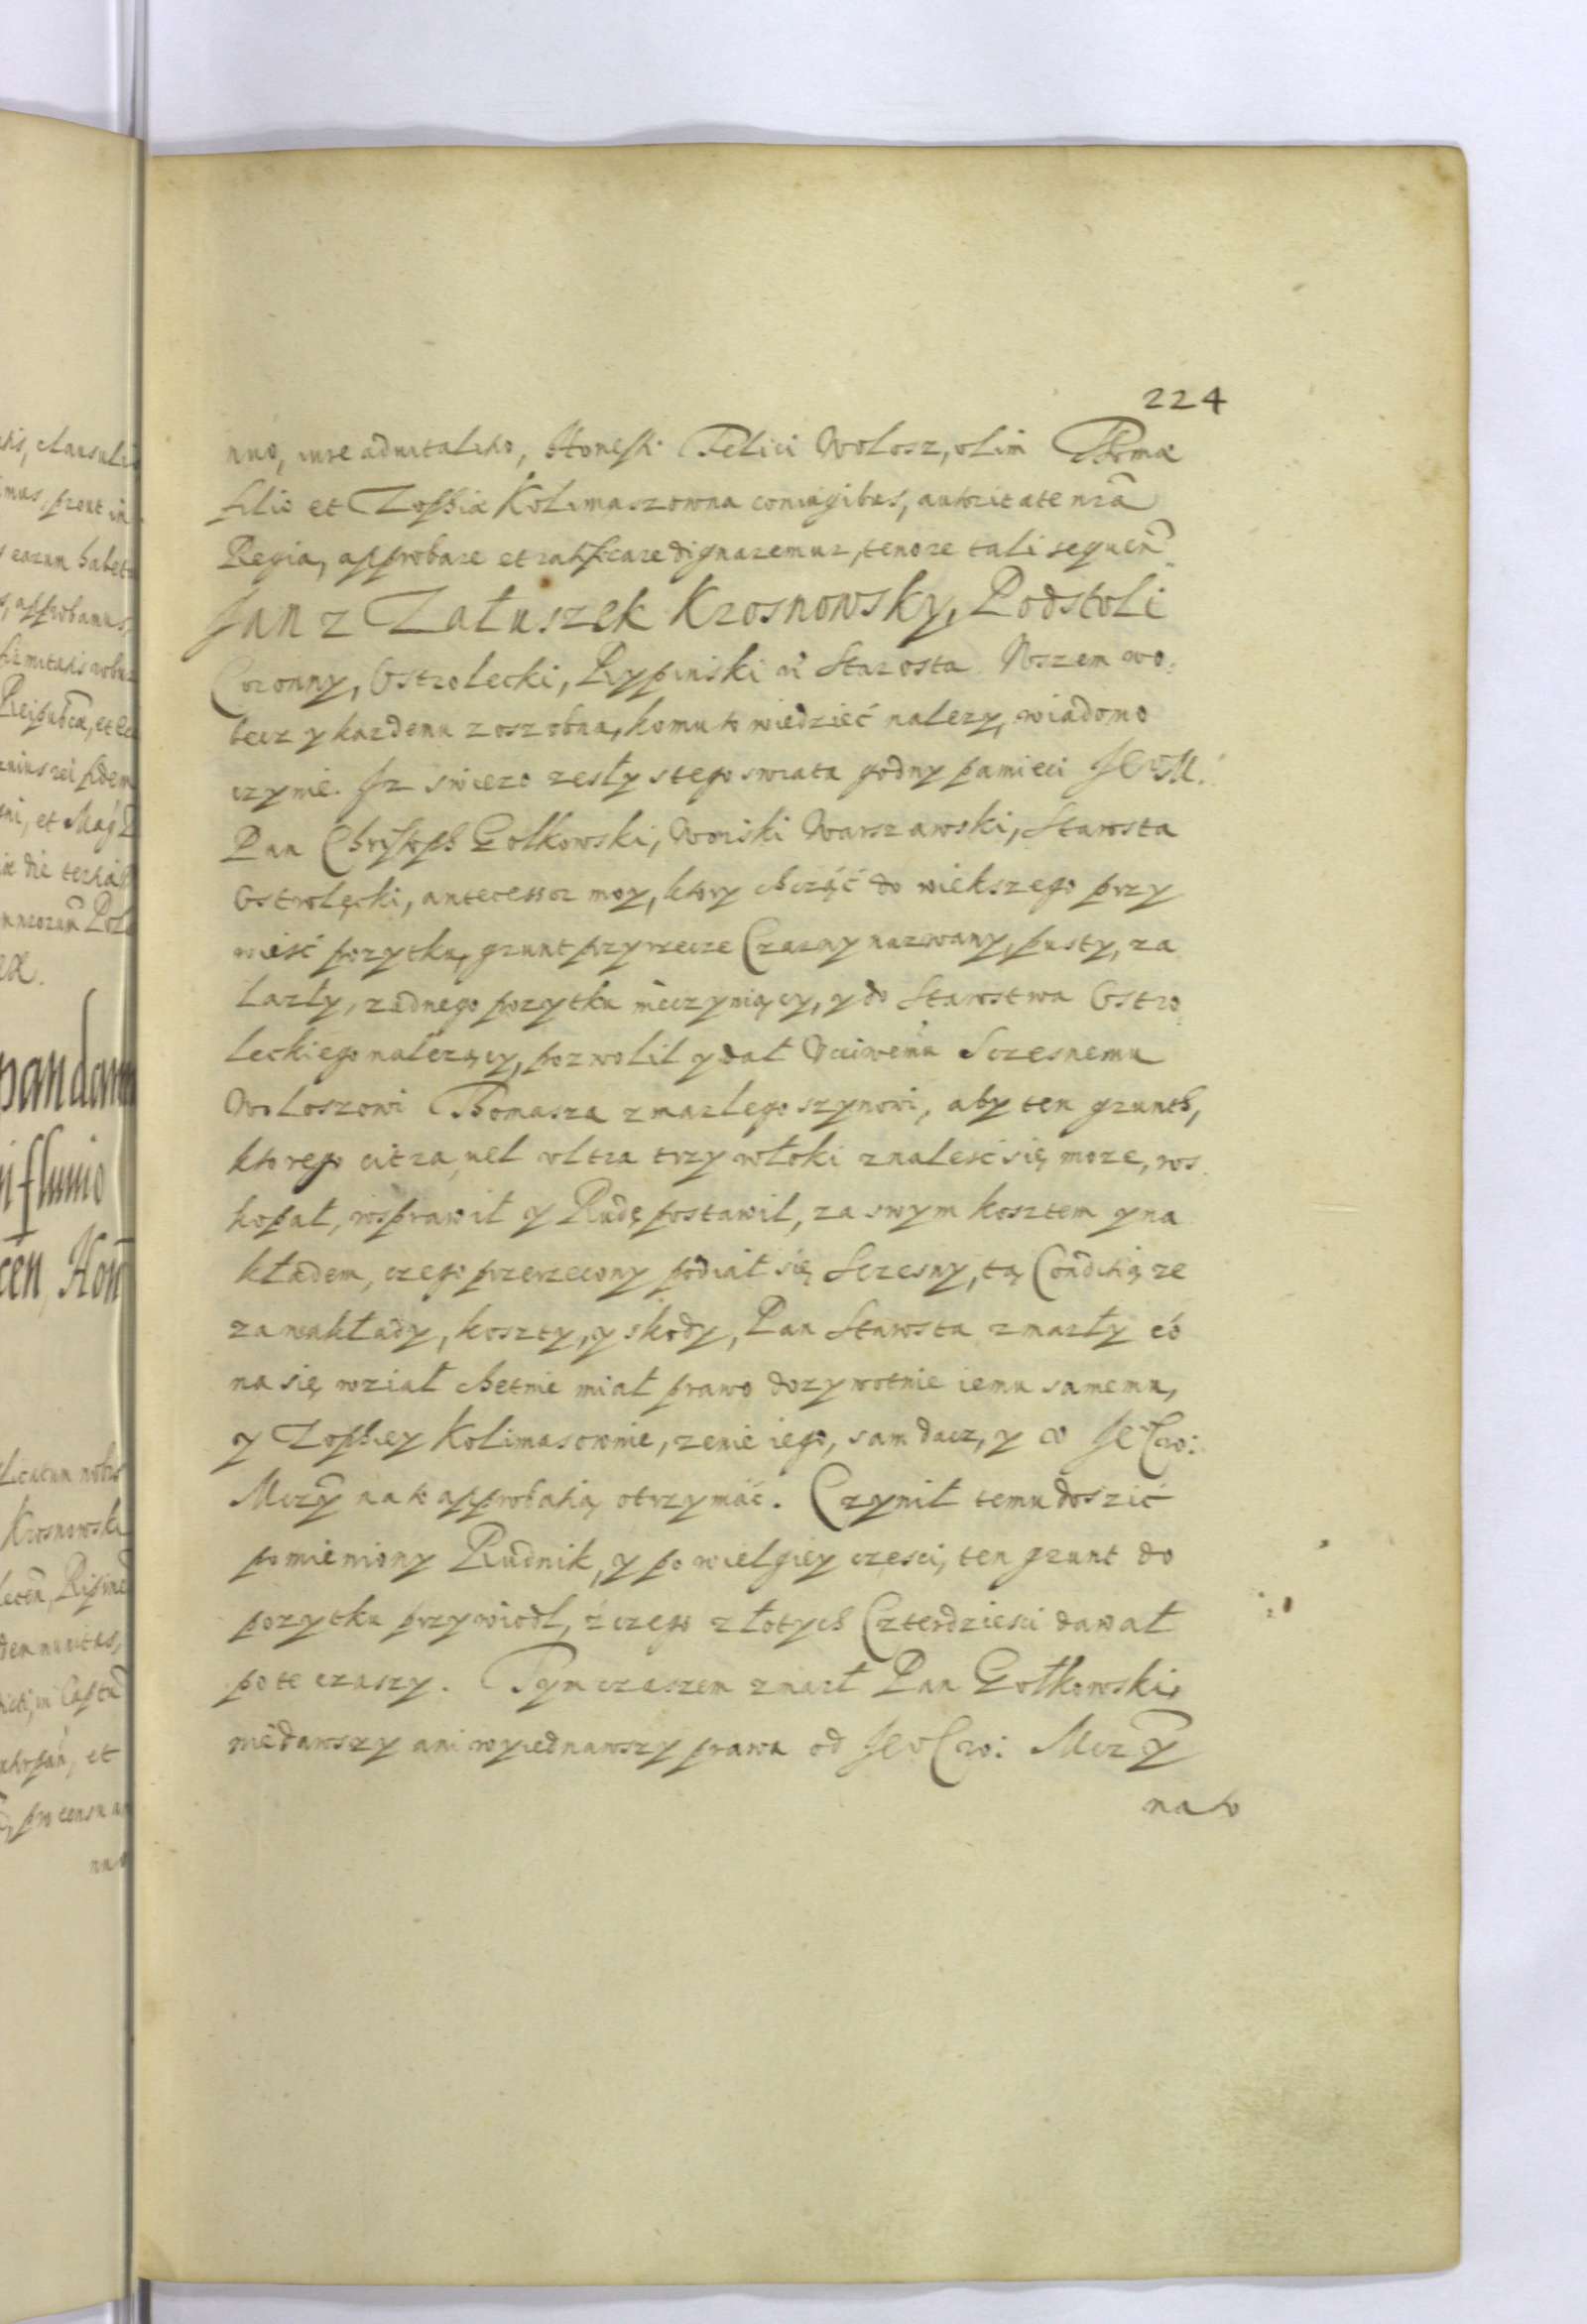 224
nuo, iure aduitalitio, Honesti Felici Wolosz, olim Thomæ
filio et Zophiæ Kolimaszowna coniugibus, autoritate nrã
Regia, approbare et ratificare dignaremur, tenore tali sequen̄.
Jan z Załuszek Krosnowsky, Podstoli
Coronny, Ostrolecki, Rypinski Starosta. Wszem wo:
becz y kazdemu z oszobna, komu to wiedzieć nalezy, wiadomo
czynie. Jz swiezo zesły stego swiata godny pamieci Je° M:
Pan Christhoph Gotkowski, Woiski Warszawski, Starosta
Ostrolęcki, antecessor moy, ktory chcząć do wiekszego przy
wieść pozytku, grunt przy rzecze Czarny nazwany, pusty, za
lazły, zadnego pozytku nieczyniący, y do Starostwa Ostro
leckiego nalezący, pozwolil y dał Vcciwemu Sczesnemu
Woloszowi Thomasza zmarlego szynowi, aby ten grunth,
ktorego citra uel vltra trzy włoki znaleść się moze, ros
kopał, wsprawił y Rudę postawil, za swym kosztem y na
kładem, czego przerzeczony podiał się Sczesny, tą Conditią ze
za nakłady, koszty, y skody, Pan Starosta zmarły co
na się wział chetnie miał prawo dozywotnie iemu samemu,
y Zophiey Kolimasownie, zenie iego, sam dacz, y v Je° Kro:
Mczy na to approbatią otrzymać. Czynił temu doszić
pomieniony Rudnik, y po wielgiey czesci, ten grunt do
pozytku przywiodł, z czego złotych Czterdziesci dawał
po te czaszy. Tym czaszem zmarł Pan Gotkowski,
niedawszy ani wyiednawszy prawa od Je° Kro: Mczy
na to